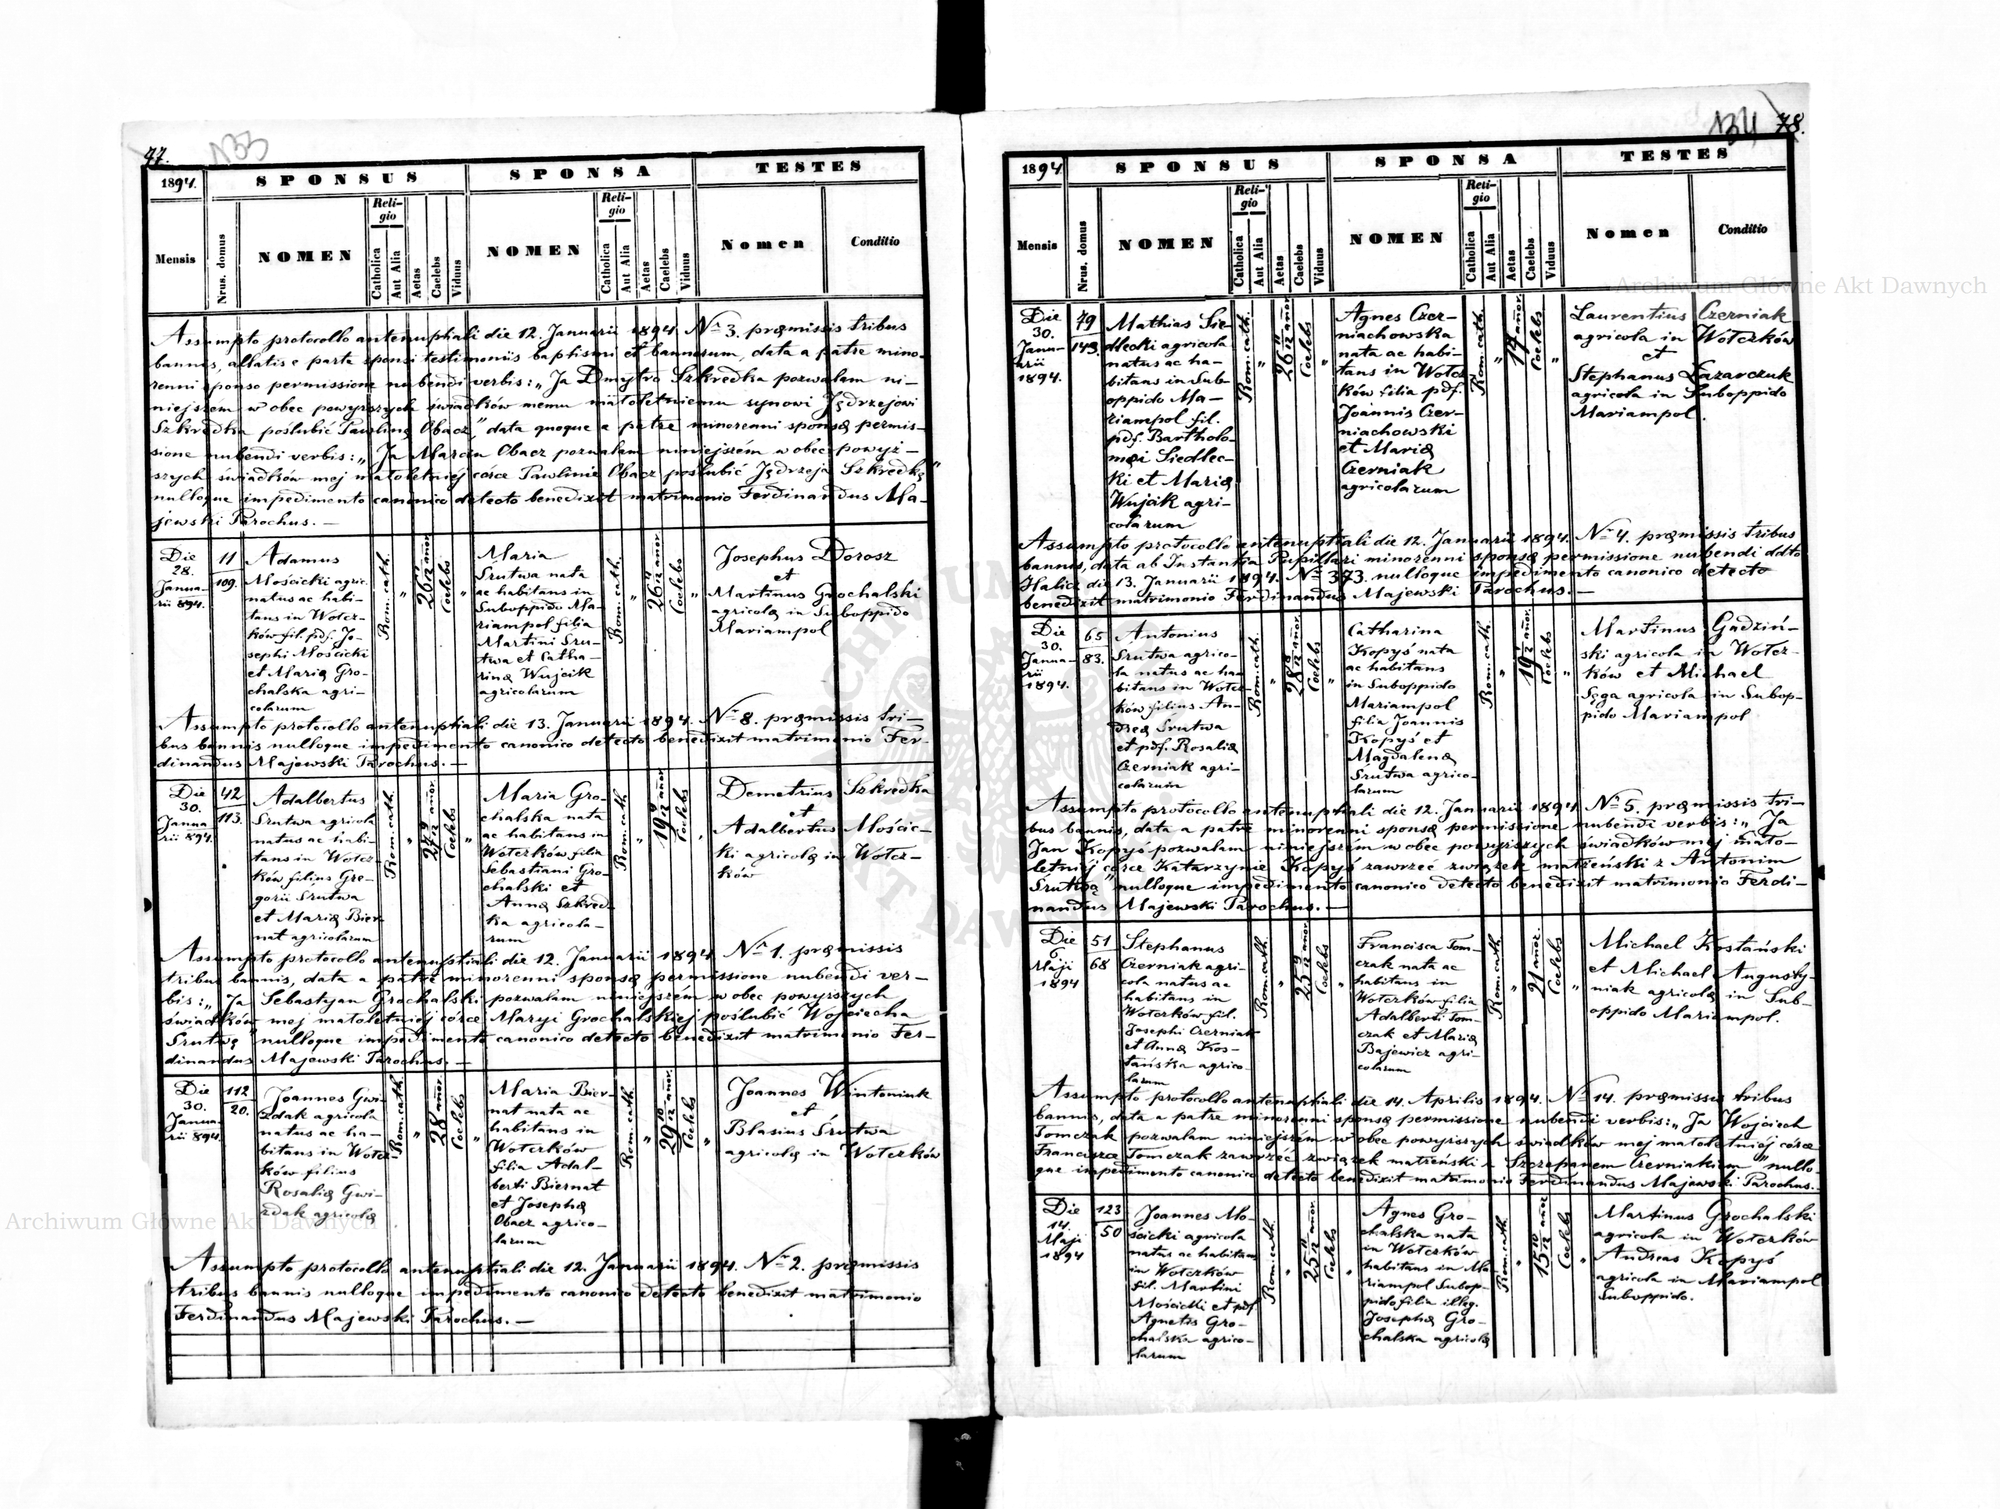 77.
133
1894.
SPONSUS
SPONSA
TESTES
Mensis
Nrus. domus
NOMEN
Religio
Catholica
Aut Alia
Aetas
Caelebs
Viduus
NOMEN
Religio
Catholica
Aut Alia
Aetas
Caelebs
Viduus
Nomen
Conditio
Assumpto protocollo antenuptiali die 12. Januarii 1894. Nr 3. præmissis tribus
bannis, allatis e parte sponsi testimoniis baptismi et bannorum, data a patre mino-
renni sponso permissione nubendi verbis: „Ja Dmytro Szkredka pozwalam ni-
niejszem w obec powyższych świadków memu małoletniemu synowi Jędrzejowi
Szkredka poślubić Pawlinę Obacz", data quoque a patre minorenni sponsæ permis-
sione nubendi verbis: „Ja Marcin Obacz pozwalam niniejszém w obec powyż-
szych świadków mej małoletniej córce Pawlinie Obacz poślubić Jędrzeja Szkredkę"
nulloque impedimento canonico detecto benedixit matrimonio Ferdinandus Ma-
jewski Parochus. —
Die
28.
Janua-
rii 894.
11
109.
Adamus
Mościcki agric.
natus ac habi-
tans in Wołcz-
ków fil. pdf. Jo-
sephi Mościcki
et Mariæ Gro-
chalska agri-
colarum
Rom. cath.
„
26 11/12 añor.
Coelebs
„
Maria
Srutwa nata
ac habitans in
Suboppido Ma-
riampol filia
Martini Sru-
twa et Catha-
rinæ Wujcik
agricolarum
Rom. cath.
„
26 11/12 añor.
Coelebs
„
Josephus Dorosz
et
Martinus Grochalski
agricolæ in Suboppido
Mariampol
Assumpto protocollo antenuptiali die 13. Januarii 1894. Nr 8. præmissis tri-
bus bannis nulloque impedimento canonico detecto benedixit matrimonio Fer-
dinandus Majewski Parochus. —
Die
30.
Janua
rii 894.
42
113.
Adalbertus
Srutwa agricola
natus ac habi-
tans in Wołcz-
ków filius Gre-
gorii Srutwa
et Mariæ Bier-
nat agricolarum
Rom. cath.
„
27 9/12 añor.
Coelebs
„
Maria Gro-
chalska nata
ac habitans in
Wołczków filia
Sebastiani Gro-
chalski et
Annæ Szkred-
ka agricola-
rum
Rom. cath.
„
19 9/12 añor.
Coelebs
„
Demetrius Szkredka
et
Adalbertus Mościc-
ki agricolæ in Wołcz-
ków
Assumpto protocollo antenuptiali die 12. Januarii 1894. Nr 1. præmissis
tribus bannis, data a patre minorenni sponsæ permissione nubendi ver-
bis: „Ja Sebastyan Grochalski pozwalam niniejszém w obec powyższych
świadków mej małoletniej córce Maryi Grochalskiej poślubić Wojciecha
Srutwę" nulloque impedimento canonico detecto benedixit matrimonio Fer-
dinandus Majewski Parochus. —
Die
30.
Janua-
rii 894.
112
20.
Joannes Gwi-
zdak agricola
natus ac ha-
bitans in Wołcz-
ków filius
Rosaliæ Gwi-
zdak agricolæ
Rom. cath.
„
28 añor.
Coelebs
„
Maria Bier-
nat nata ac
habitans in
Wołczków
filia Adal-
berti Biernat
et Josephæ
Obacz agrico-
larum
Rom. cath.
„
29 10/12 añor.
Coelebs
„
Joannes Wintoniak
et
Blasius Srutwa
agricolæ in Wołczków
Assumpto protocollo antenuptiali die 12. Januarii 1894. Nr 2. præmissis
tribus bannis nulloque impedimento canonico detecto benedixit matrimonio
Ferdinandus Majewski Parochus. —
134
78.
1894.
SPONSUS
SPONSA
TESTES
Mensis
Nrus. domus
NOMEN
Religio
Catholica
Aut Alia
Aetas
Caelebs
Viduus
NOMEN
Religio
Catholica
Aut Alia
Aetas
Caelebs
Viduus
Nomen
Conditio
Die
30.
Janu-
arii
1894.
49
143.
Mathias Sie-
dlecki agricola
natus ac ha-
bitans in Sub-
oppido Ma-
riampol fil.
pdf. Bartholo-
mæi Siedlec-
ki et Mariæ
Wujcik agri-
colarum
Rom. cath.
„
26 11/12 añor.
Coelebs
„
Agnes Czer-
niachowska
nata ac habi-
tans in Wołcz-
ków filia pdf.
Joannis Czer-
niachowski
et Mariæ
Czerniak
agricolarum
Rom. cath.
„
17 añor.
Coelebs
„
Laurentius Czerniak
agricola in Wołczków
et
Stephanus Lazarczuk
agricola in Suboppido
Mariampol.
Assumpto protocollo antenuptiali die 12. Januarii 1894. Nr 4. præmissis tribus
bannis, data ab Instantia Pupillari minorenni sponsæ permissione nubendi ddto
Halicz die 13. Januarii 1894. Nr 373. nulloque impedimento canonico detecto
benedixit matrimonio Ferdinandus Majewski Parochus. —
Die
30.
Janua-
rii
1894.
65
83.
Antonius
Srutwa agrico-
la natus ac ha-
bitans in Wołcz-
ków filius An-
dreæ Srutwa
et pdf. Rosaliæ
Czerniak agri-
colarum
Rom. cath.
„
28 8/12 añor.
Coelebs
„
Catharina
Kopyś nata
ac habitans
in Suboppido
Mariampol
filia Joannis
Kopyś et
Magdalenæ
Srutwa agrico-
larum
Rom. cath.
„
19 2/12 añor.
Coelebs
„
Martinus Gądziń-
ski agricola in Wołcz-
ków et Michael
Sęga agricola in Subop-
pido Mariampol
Assumpto protocollo antenuptiali die 12. Januarii 1894. Nr 5. præmissis tri-
bus bannis, data a patre minorenni sponsæ permissione nubendi verbis: „Ja
Jan Kopyś pozwalam niniejszém w obec powyższych świadków mej mało-
letniej córce Katarzynie Kopyś zawrzeć związek małżeński z Antonim
Srutwą" nulloque impedimento canonico detecto benedixit matrimonio Ferdi-
nandus Majewski Parochus. —
Die
6.
Maji
1894
51
68
Stephanus
Czerniak agri-
cola natus ac
habitans in
Wołczków fil.
Josephi Czerniak
et Annæ Kos-
tańska agrico-
larum
Rom. cath.
„
25 9/12 añor.
Coelebs
„
Francisca Tom-
czak nata ac
habitans in
Wołczków filia
Adalberti Tom-
czak et Mariæ
Bajewicz agri-
colarum
Rom. cath.
„
21 añor.
Coelebs
„
Michael Kostański
et Michael Augusty-
niak agricolæ in Sub-
oppido Mariampol.
Assumpto protocollo antenuptiali die 14. Aprilis 1894. Nr 14. præmissis tribus
bannis, data a patre minorenni sponsæ permissione nubendi verbis: „Ja Wojciech
Tomczak pozwalam niniejszém w obec powyższych świadków mej małoletniej córce
Franciszce Tomczak zawrzéć związek małżeński z Szczepanem Czerniakiem" nullo-
que impedimento canonico detecto benedixit matrimonio Ferdinandus Majewski Parochus. —
Die
14.
Maji
1894
123
50
Joannes Mo-
ścicki agricola
natus ac habitans
in Wołczków
fil. Martini
Mościcki et pdf.
Agnetis Gro-
chalska agrico-
larum
Rom. cath.
„
25 11/12 añor.
Coelebs
„
Agnes Gro-
chalska nata
in Wołczków
habitans in Ma-
riampol Subop-
pido filia illeg.
Josephæ Gro-
chalska agricolæ
Rom. cath.
„
15 10/12 añor.
Coelebs
„
Martinus Grochalski
agricola in Wołczków
Andreas Kopyś
agricola in Mariampol
Suboppido.
Archiwum Główne Akt Dawnych
Archiwum Główne Akt Dawnych
ARCHIWUM
AKT DAWNYCH